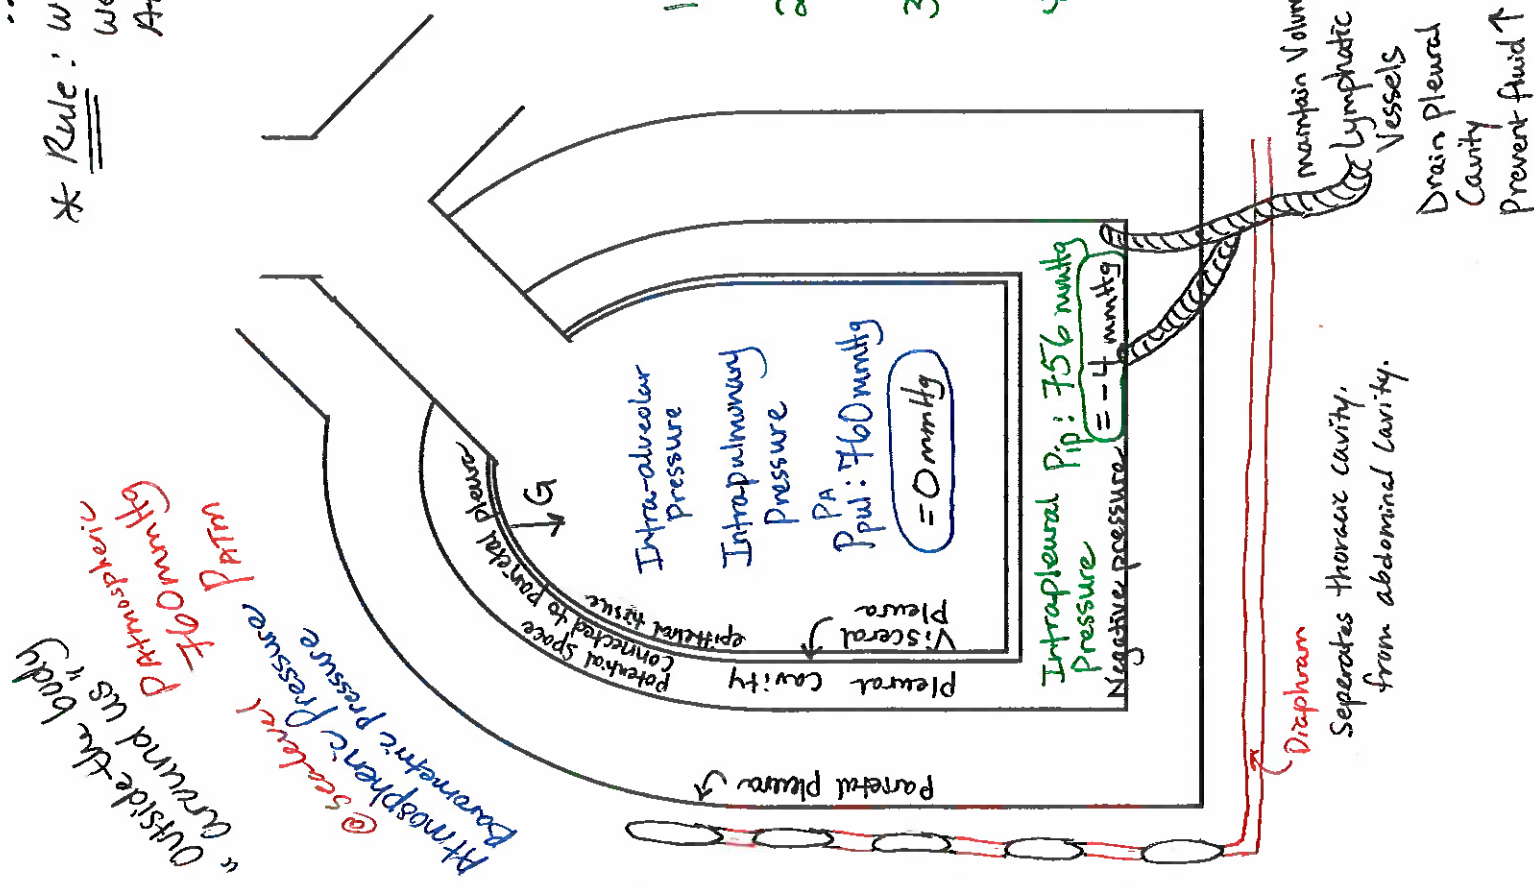 * Rule: w
we
A
1
2
3
"Outside the body
around us"
PAtmospheric
760mmHg
@ sealevel
Atmospheric Pressure PATM
Barometric pressure
Parietal pleura
Pleural Cavity
potential space
connected to parietal pleura
epithelial tissue
Visceral
Pleura
G
Intra-alveolar
Pressure
Intrapulmonary
Pressure
PA
Ppul: 760mmHg
= 0mmHg
Intrapleural Pip: 756 mmHg
Pressure
= -4 mmHg
Negative pressure
Diaphram
Seperates thoracic cavity,
from abdominal cavity.
maintain Volum
Lymphatic
Vessels
Drain pleural
Cavity
Prevent fluid ↑